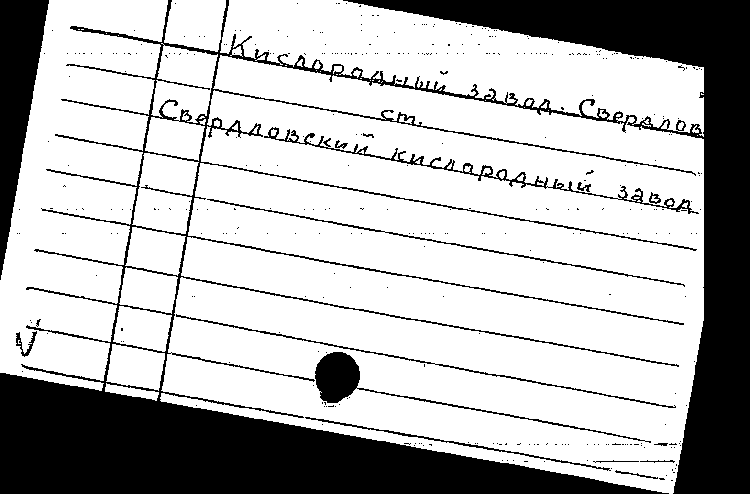 Кислородный завод. Свердлов
ст.
Свердловский кислородный завод
V